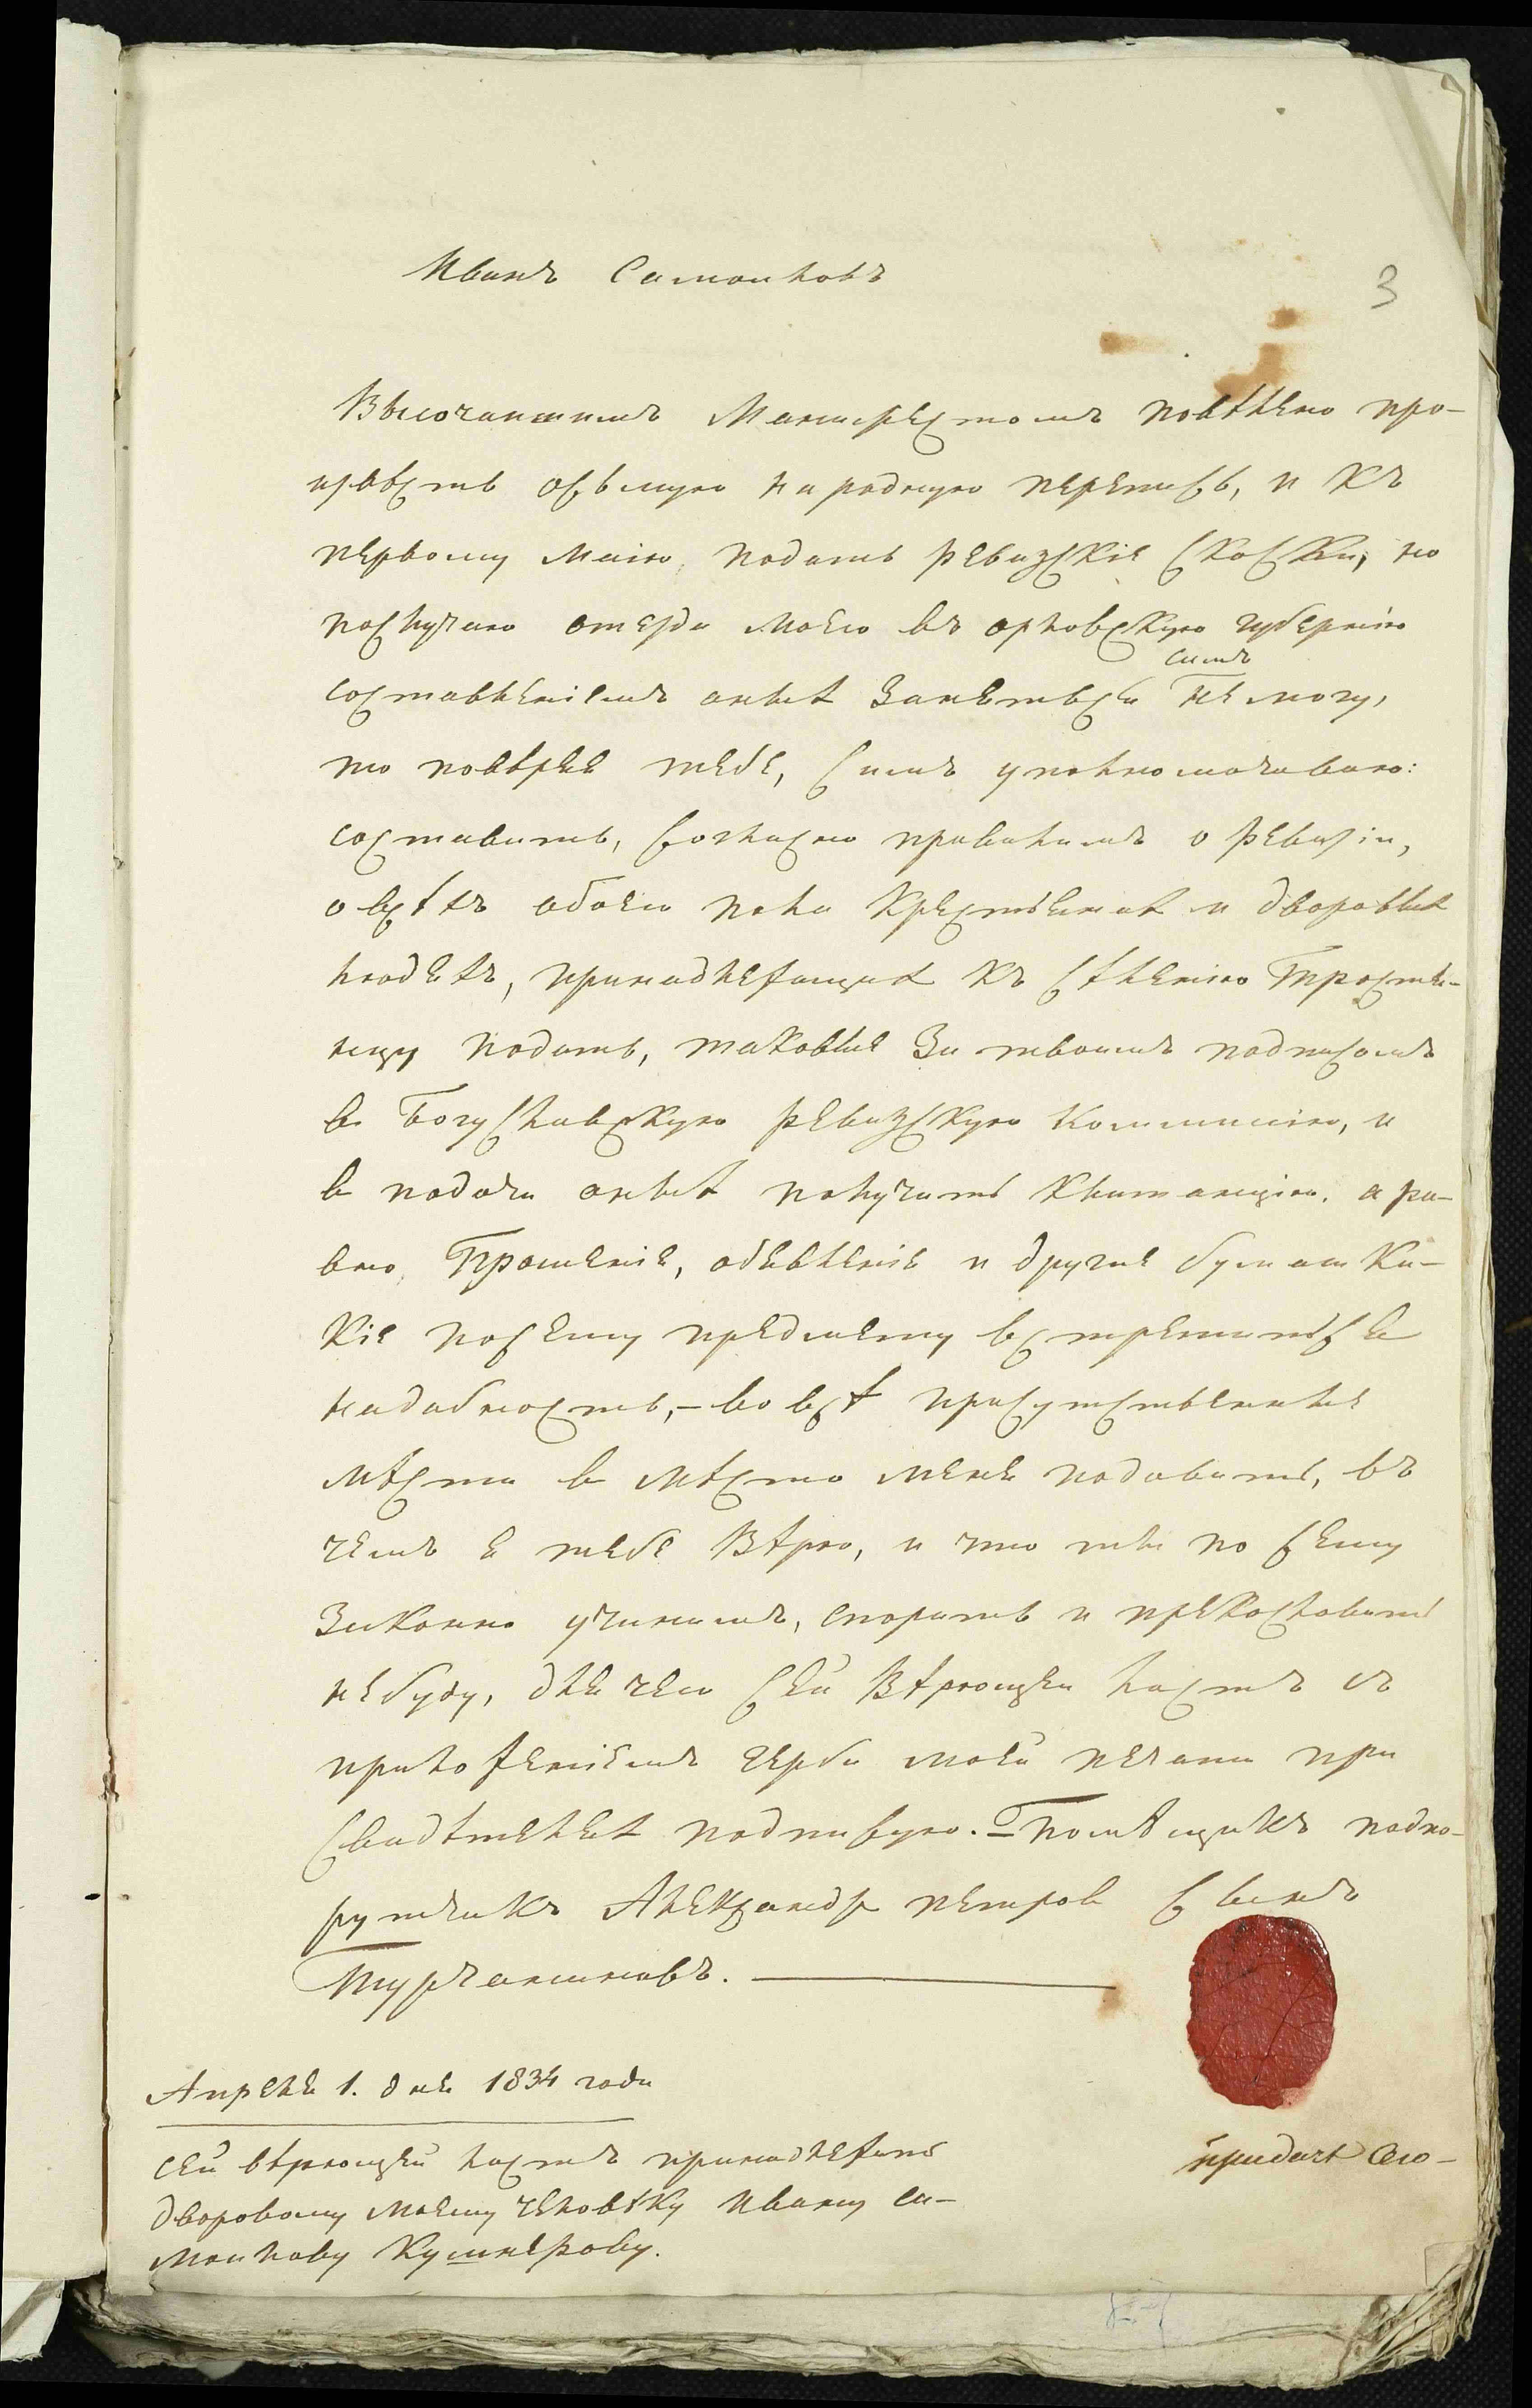 Иванъ Самойловъ
3
Высочаишимъ Манифестомъ повѣлено про-
извѣсть осьмую народную перепись, и къ
первому маію, подать ревизскіе скаски, но
послучаю отезда моего въ орловскую губернію
симъ
составленіемъ оныхъ Занятьси не могу,
то повѣряя тебе, симъ уполномочиваю:
составить, согласно правиламъ о ревизіи,
о всѣхъ обоего пола крестьянахъ и дворовыхъ
людехъ, принадлежащихъ къ сѣленію Тростя-
нцу подать, таковые За твоимъ подписомъ
в Богуславскую ревизскую коммисію, и
в подачи оныхъ получить квитанцію. а ра-
вно, Прошеніе, обявленіе и другие бумаги ка-
кіе посему предмету встретитьси
надобность,- во всѣ присутственные
мѣста в мѣсто меня подавать, въ
чемъ я тебе Вѣрю, и что ты по сему
Законно учинишъ, спорить и прекословить
небуду, для чего сей Вѣрющей листъ съ
приложеніемъ герба моей печати при
свидѣтеляхъ подписую. Помѣщикъ подпо-
рутчикъ Александр петров сынъ
Турчаниновъ.
Апреля 1. дня 1834 года
сей вѣрющей листъ принадлежитъ
дворовому моему человѣку Ивану са-
мойлову Кушнерову.